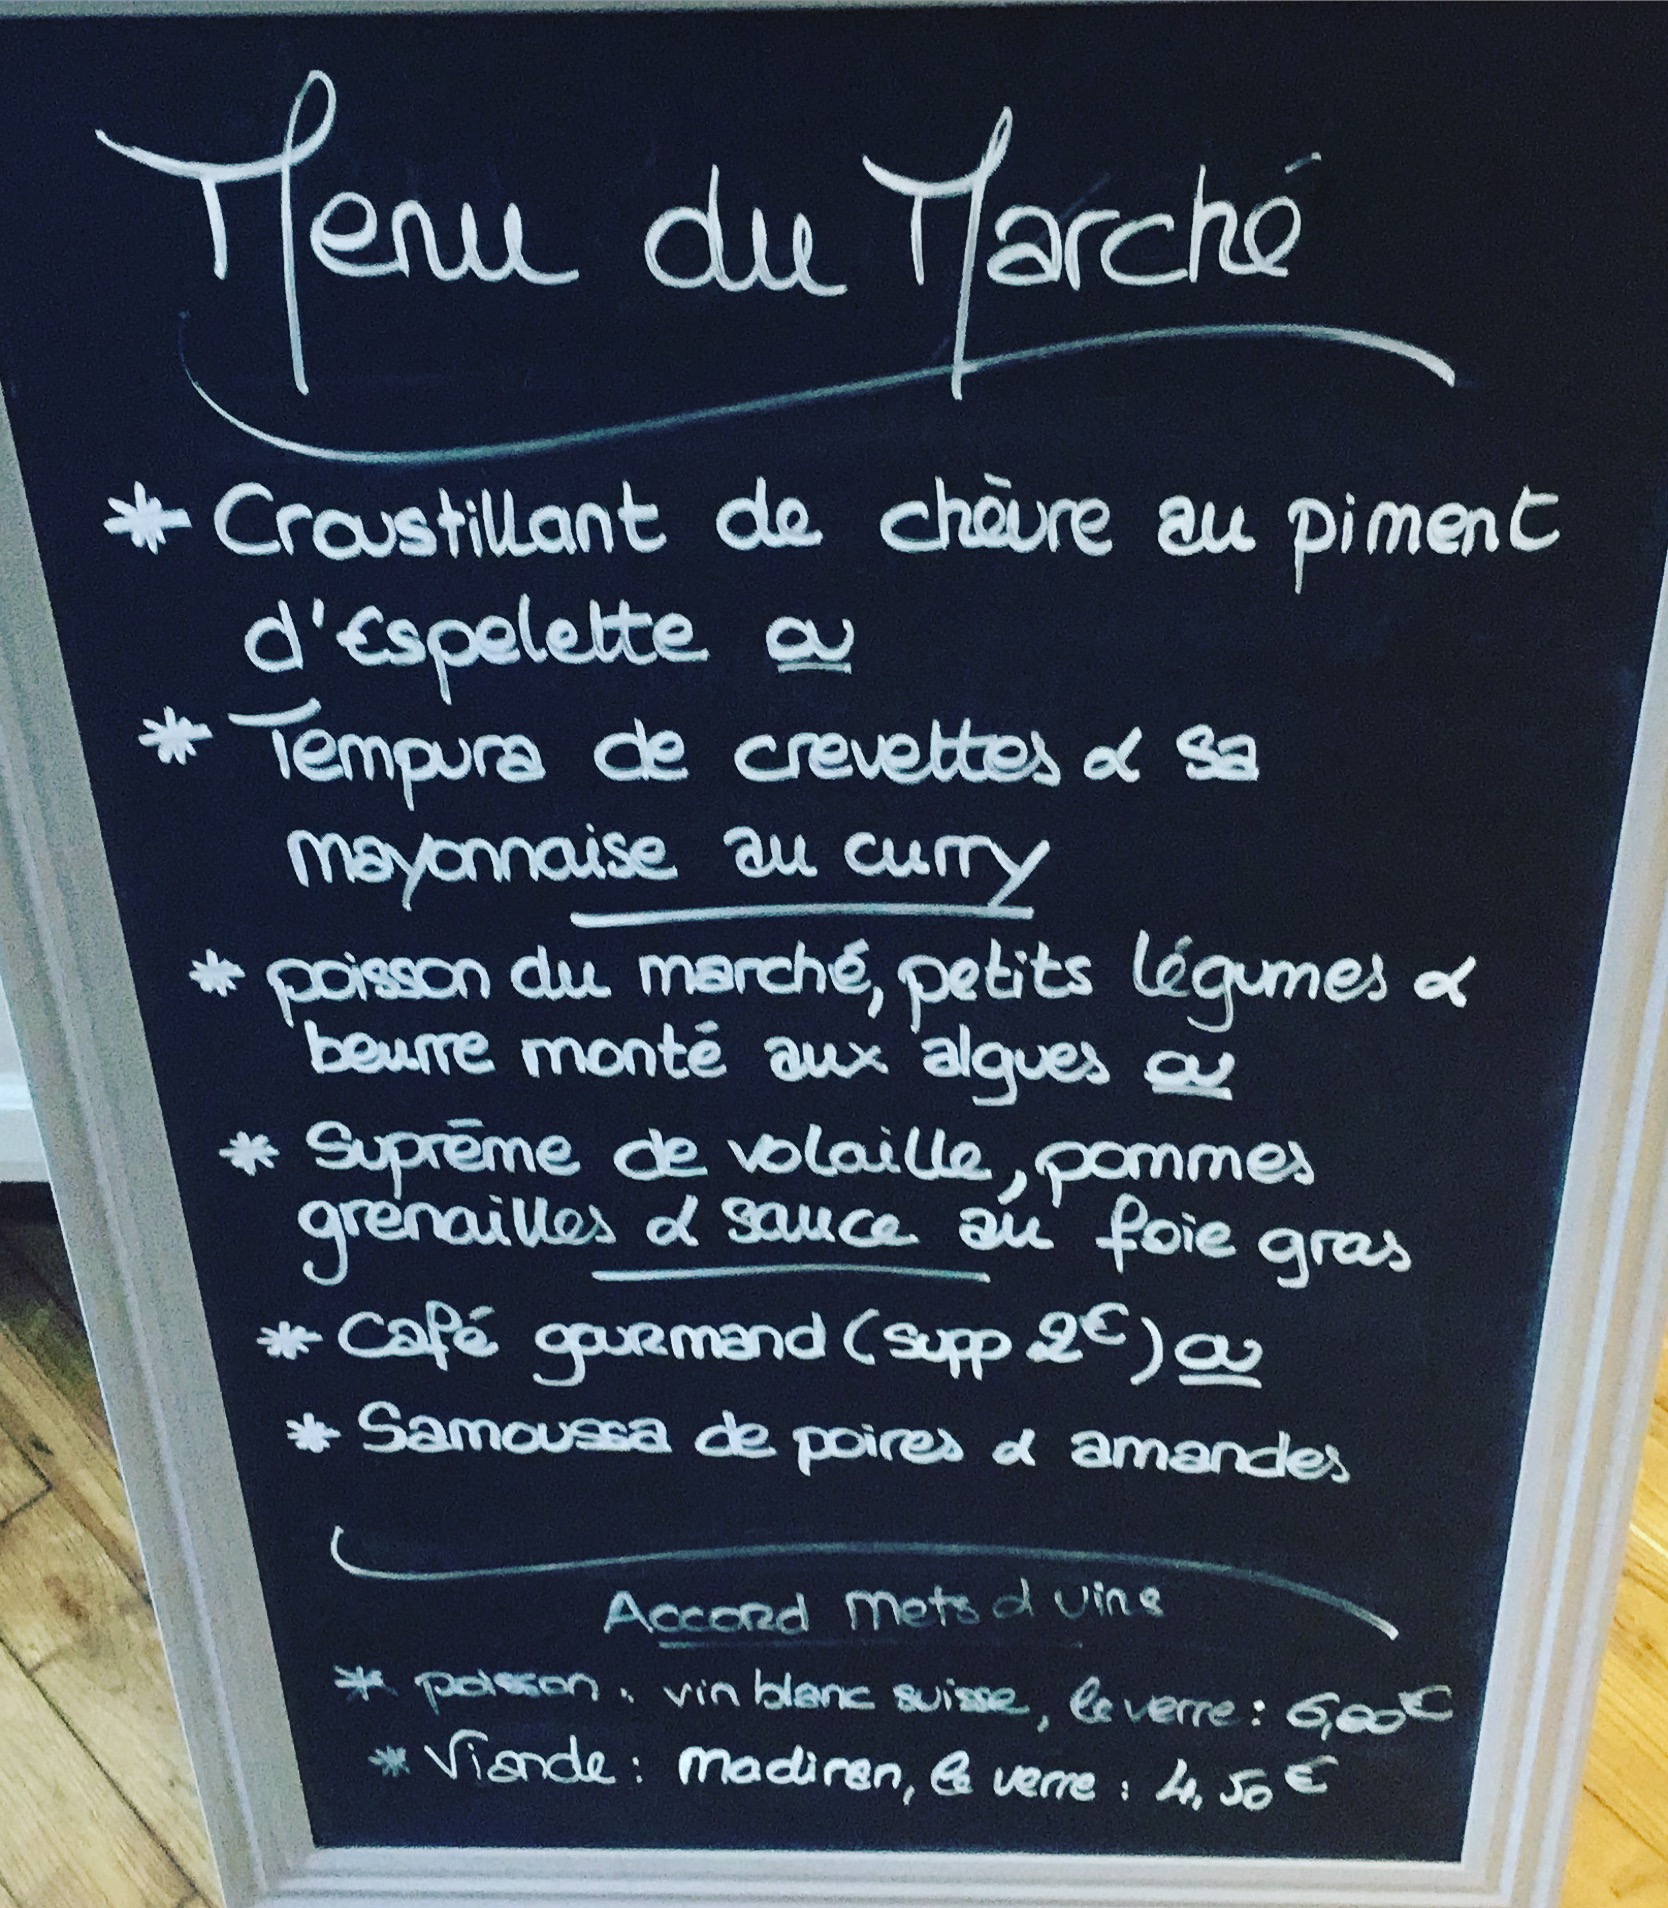 Menu du Marché
* Croustillant de chèvre au piment
d'Espelette ou
* Tempura de crevettes & sa
mayonnaise au curry
* poisson du marché, petits légumes &
beurre monté aux algues ou
* Suprême de volaille, pommes
grenailles & sauce au foie gras
* Café gourmand (supp 2€) ou
* Samoussa de poires & amandes
Accord Mets & vins
* poisson : vin blanc suisse, le verre : 6,00€
* Viande : Madiran, le verre : 4,50€